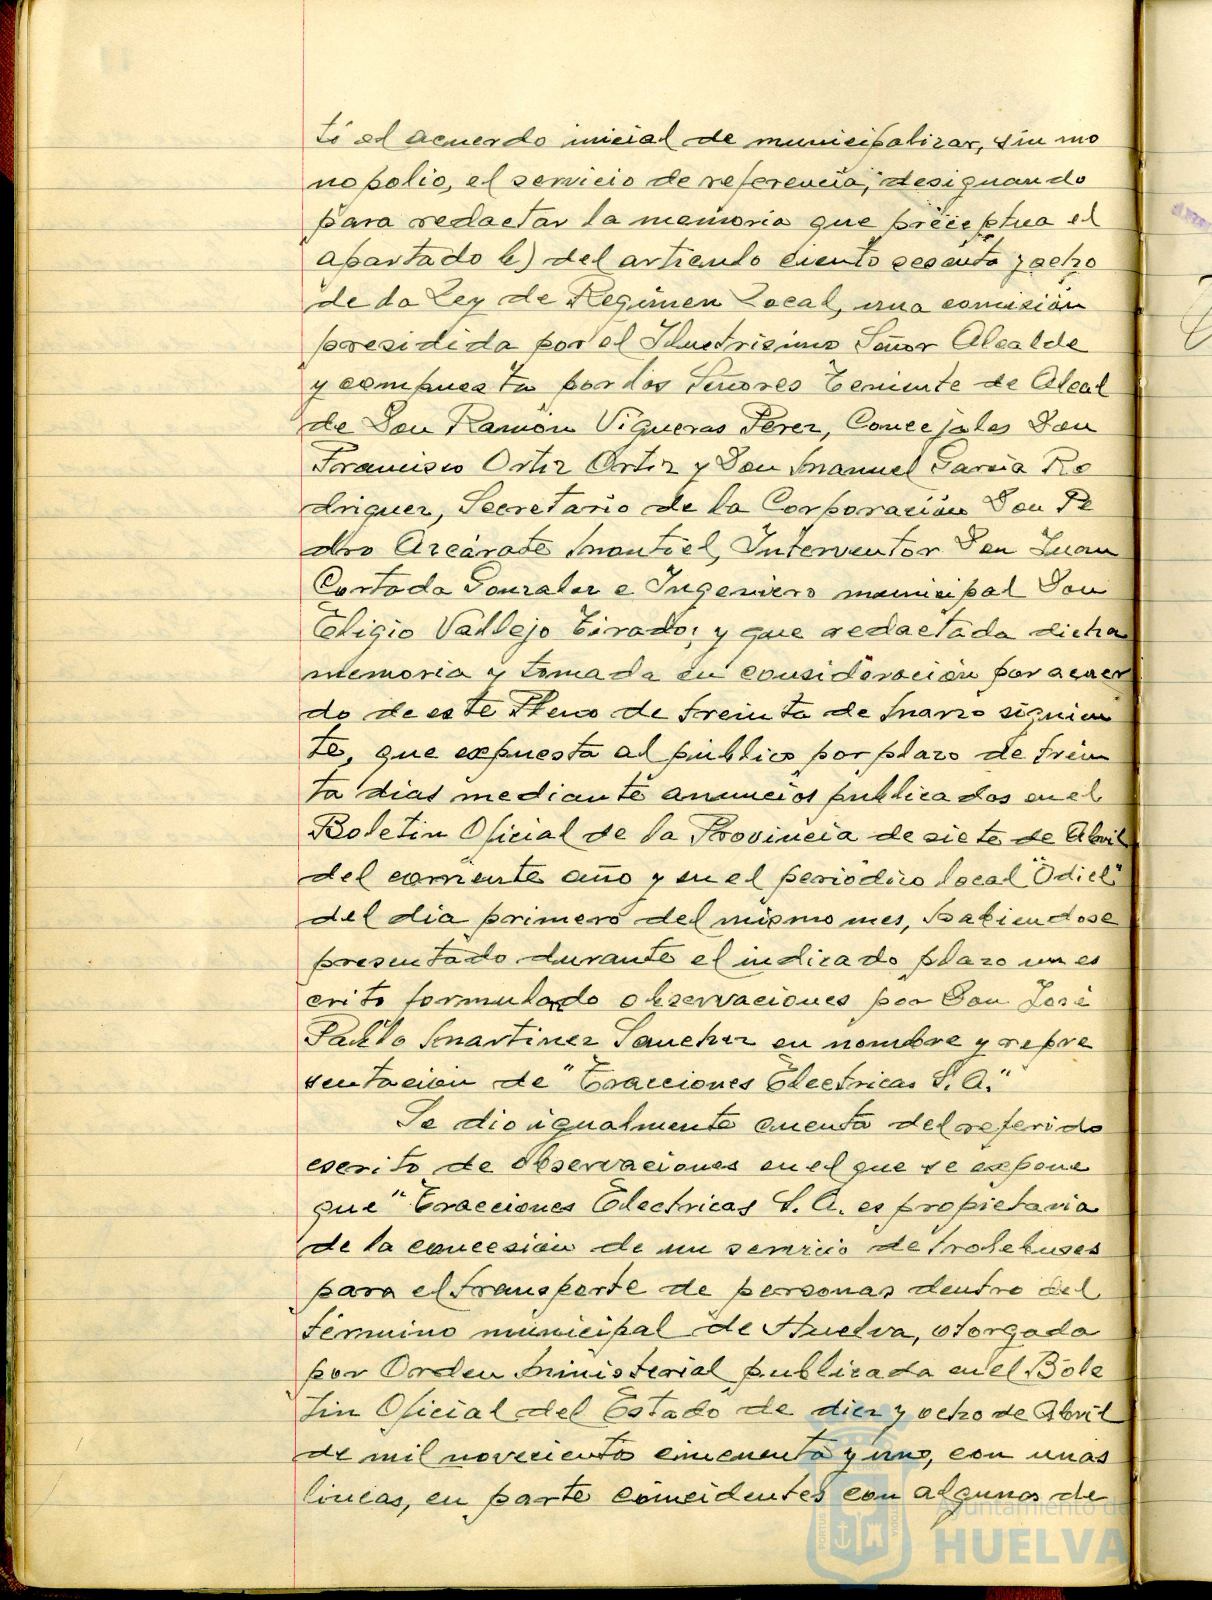 tó el acuerdo inicial de municipalizar, sin mo
nopolio, el servicio de referencia, designando
para redactar la memoria que preceptua el
apartado b) del articulo ciento sesenta y ocho
de la Ley de Regimen Local, una comisión
presidida por el Ilustrisimo Señor Alcalde
y compuesta por los Señores Teniente de Alcal
de Don Ramón Vigueras Perez, Concejales Don
Francisco Ortiz Ortiz y Don Manuel Garcia Ro
driguez, Secretario de la Corporación Don Pe
dro Azcárate Montiel, Interventor Don Juan
Cortada Gonzalez e Ingeniero municipal Don
Eligio Vallejo Tirado; y que redactada dicha
memoria y tomada en consideración por acuer
do de este Pleno de treinta de Marzo siguien
te, que expuesta al público por plazo de trein
ta dias mediante anuncios publicados en el
Boletin Oficial de la Provincia de siete de Abril
del corriente año y en el periódico local "Odiel"
del dia primero del mismo mes, habiendose
presentado durante el indicado plazo un es
crito formulando observaciones por Don José
Pablo Martinez Sanchez en nombre y repre
sentación de "Tracciones Electricas S.A."
Se dio igualmente cuenta del referido
escrito de observaciones en el que se expone
que "Tracciones Electricas S.A. es propietaria
de la concesión de un servicio de trolebuses
para el transporte de personas dentro del
término municipal de Huelva, otorgada
por Orden Ministerial publicada en el Bole
tin Oficial del Estado de diez y ocho de Abril
de mil novecientos cincuenta y uno, con unas
lineas, en parte coincidentes con algunas de
Ayuntamiento de
HUELVA